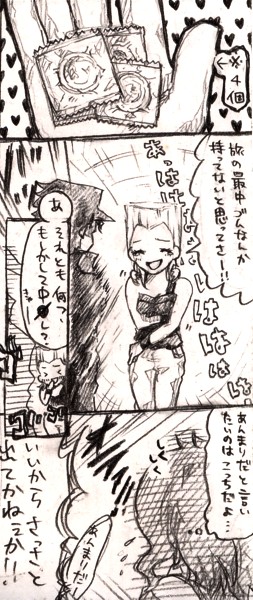 ←※
4個
旅の最中ゴムなんか
持ってないと思ってさー!!!
あっはっはっ
はははははは
あ
それとも何?
もしかして中
し?
あんまりだと言い
たいのはこっちだよ…
しくしく
あんまりだー
いいからさっさと
出てかねぇか!!